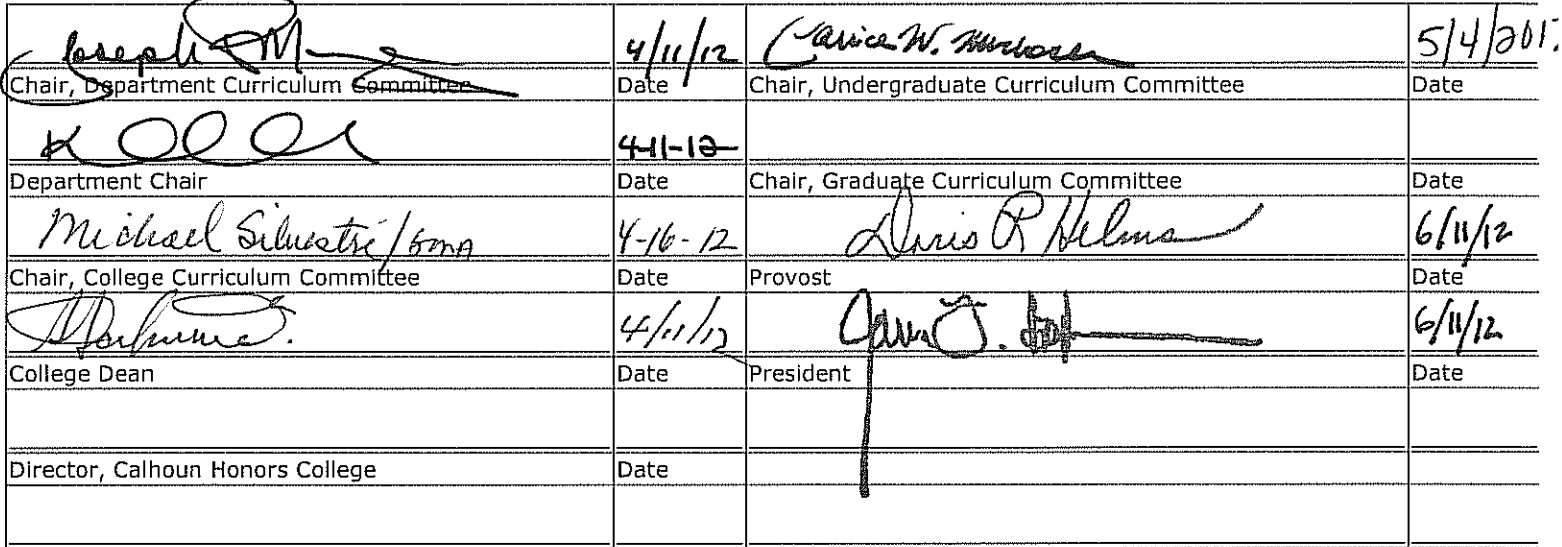 Joseph 4/11/12 Janice W. Murdoch 5/4/201
Chair, Department Curriculum Committee Date Chair, Undergraduate Curriculum Committee Date
K 4-11-12
Department Chair Date Chair, Graduate Curriculum Committee Date
Michael Silvestri/ 4-16-12 Doris R Helms 6/11/12
Chair, College Curriculum Committee Date Provost Date
4/11/12 6/11/12
College Dean Date President Date
Director, Calhoun Honors College Date